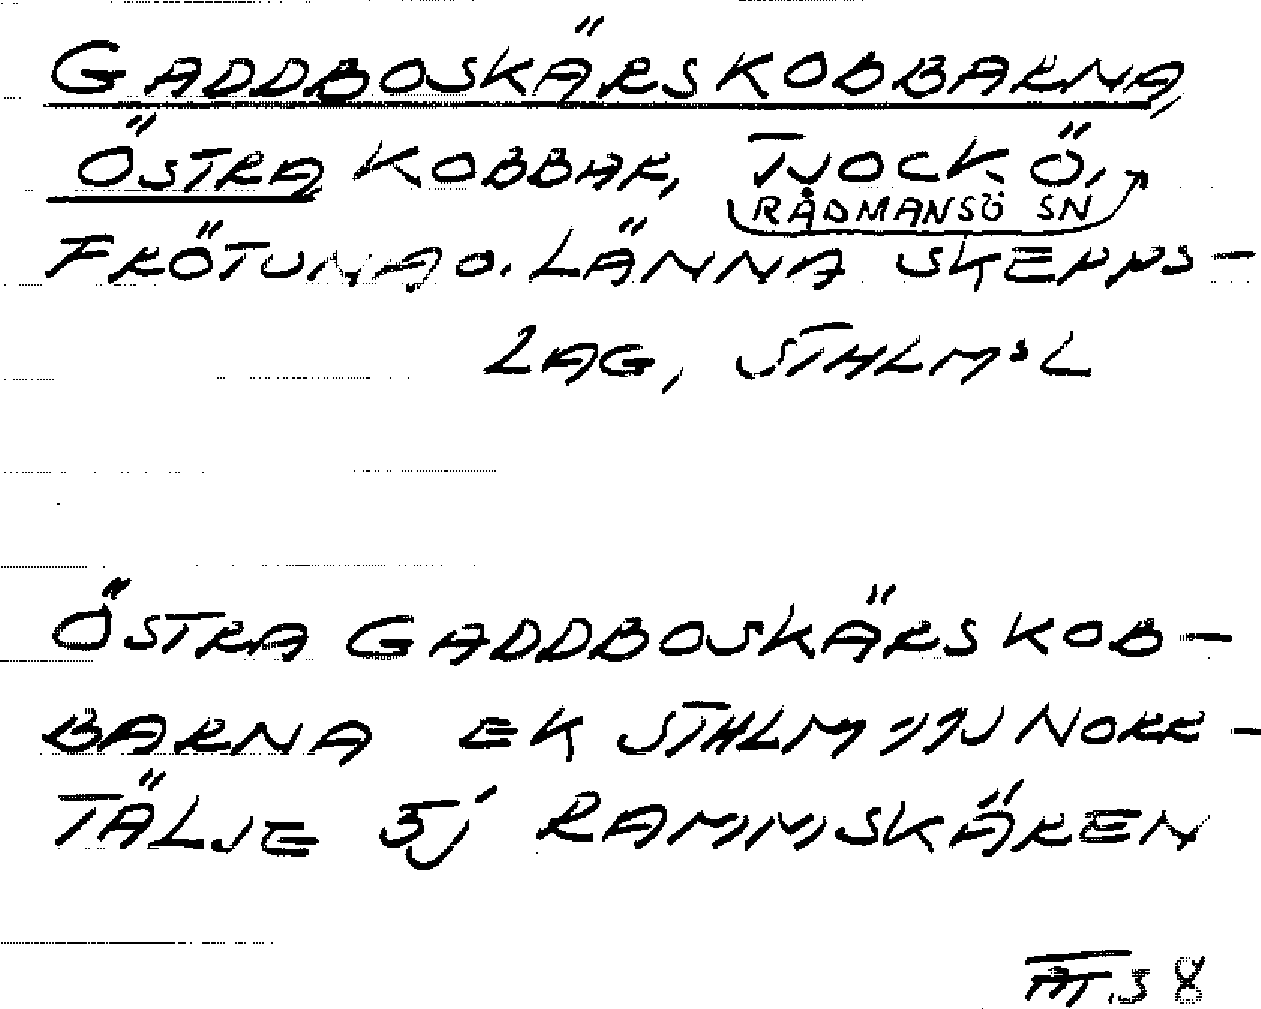 GADDBOSKÄRSKOBBARNA,
ÖSTRA KOBBAR, TJOCKÖ,
RÅDMANSÖ SN
FRÖTUNA O. LÄNNA SKEPPS-
LAG, STHLMSL
ÖSTRA GADDBOSKÄRSKOB-
BARNA EK STHLM 11J NORR-
TÄLJE 5j RAMMSKÄREN